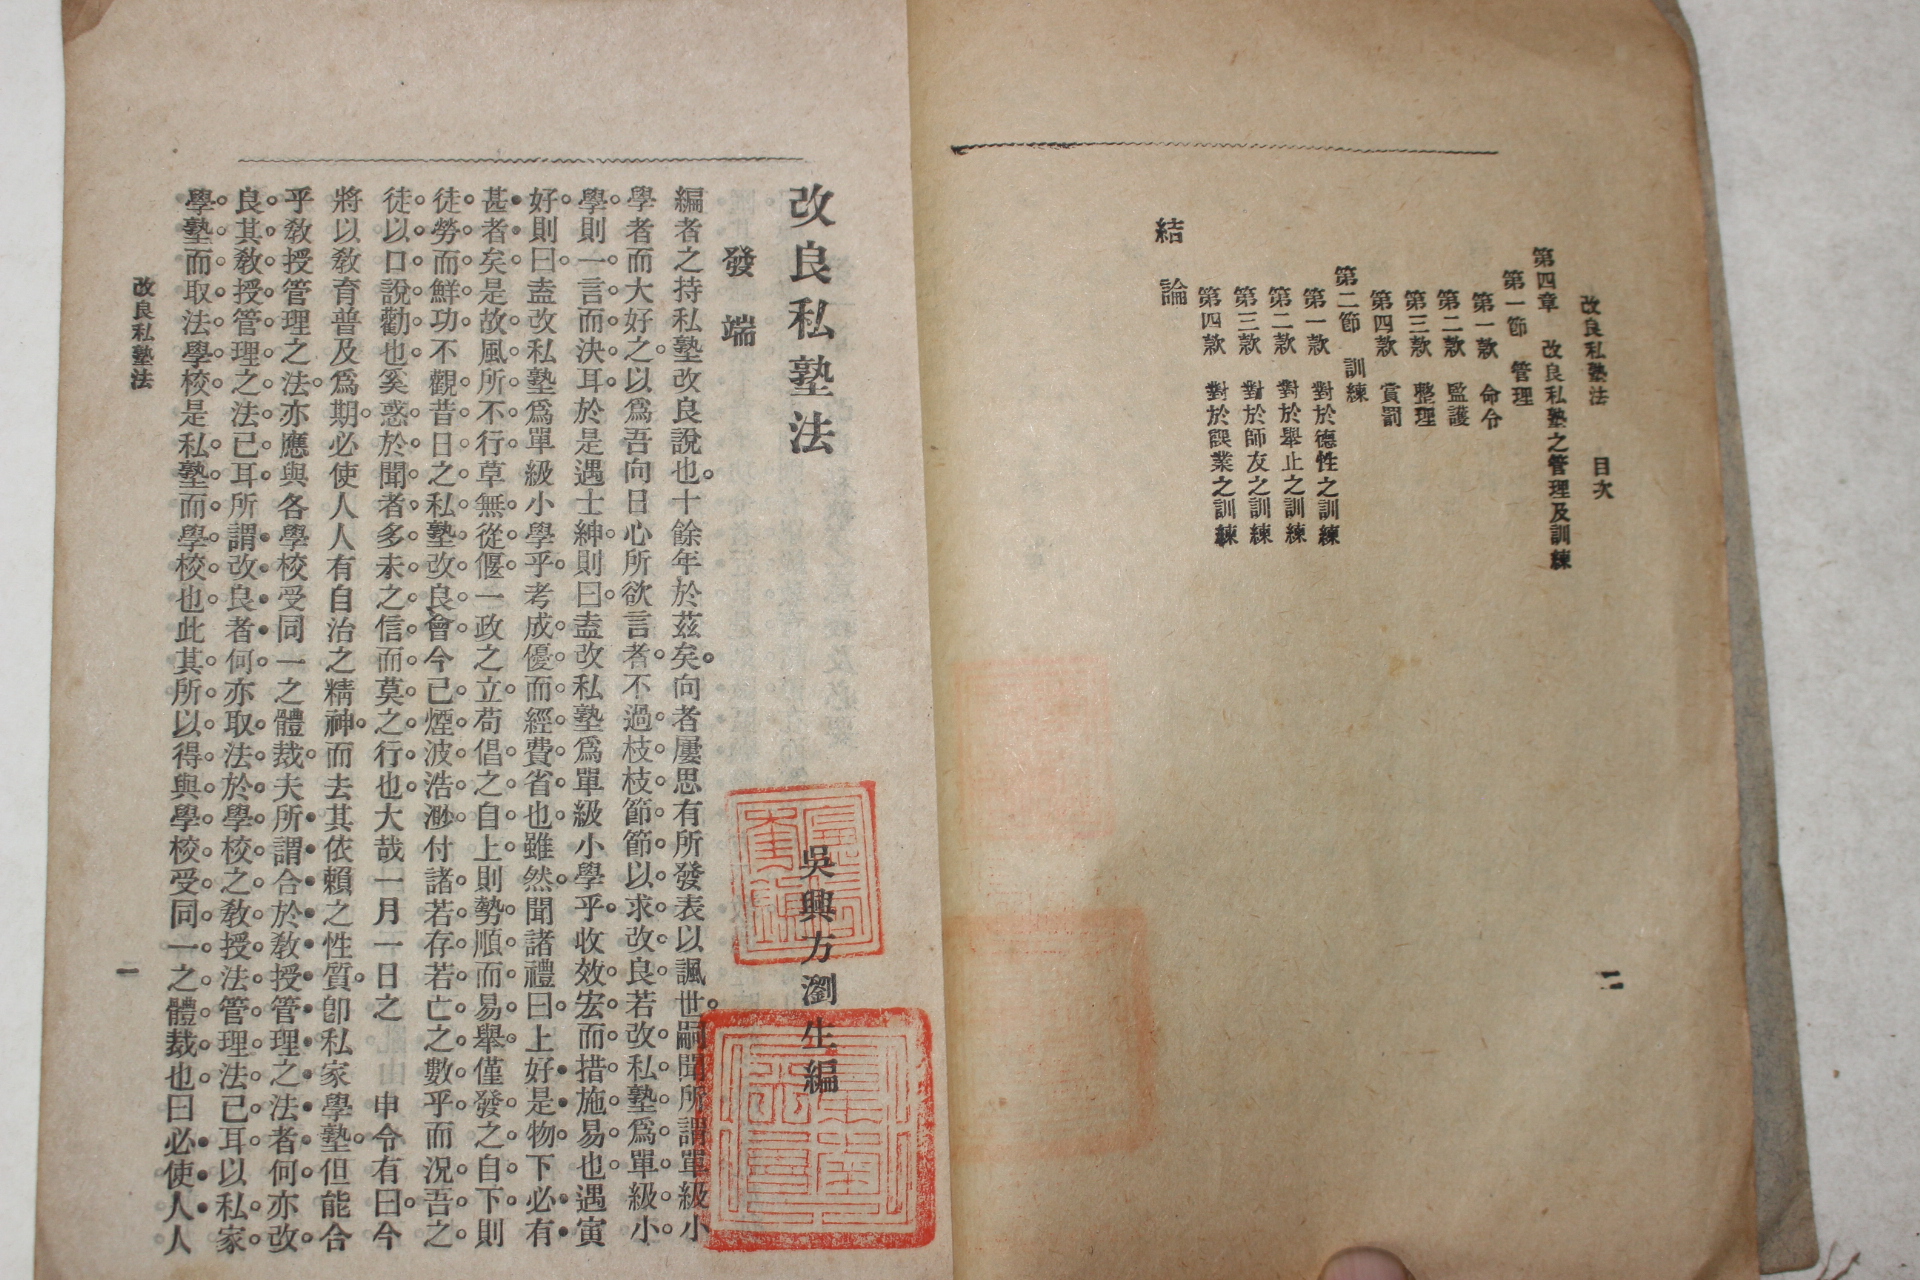 改良私塾法 目次
第四章 改良私塾之管理及訓練
第一節 管理
第一款 命令
第二款 監護
第三款 整理
第四款 賞罰
第二節 訓練
第一款 對於德性之訓練
第二款 對於舉止之訓練
第三款 對於師友之訓練
第四款 對於課業之訓練
結論
二
改良私塾法
吳興方瀏生編
發端
編者之持私塾改良說也。十餘年於茲矣。向者屢思有所發表以諷世。嗣聞所謂單級小
學者而大好之。以爲吾向日心所欲言者。不過枝枝節節。以求改良。若改私塾爲單級小
學。則一言而決耳。於是遇士紳。則曰。盍改私塾爲單級小學乎。收效宏而措施易也。遇寅
好。則曰。盍改私塾爲單級小學乎。考成優而經費省也。雖然。聞諸禮曰。上好是物。下必有
甚者矣。是故風所不行。草無從偃。一政之立。苟倡之自上。則勢順而易舉。僅發之自下。則
徒勞而鮮功。不觀昔日之私塾改良會。今已煙波浩渺。付諸若存若亡之數乎。而況吾之
徒以口說勸也。奚惑於聞者多未之信。而莫之行也。大哉一月一日之 申令有曰。今
將以敎育普及爲期。必使人人有自治之精神。而去其依賴之性質。卽私家學塾。但能合
乎敎授管理之法。亦應與各學校受同一之體裁。夫所謂合於敎授管理之法者何。亦改
良其敎授管理之法已耳。所謂改良者何。亦取法於學校之敎授法管理法已耳。以私家
學塾。而取法學校。是私塾而學校也。此其所以得與學校受同一之體裁也。曰必使人人
改良私塾法
一